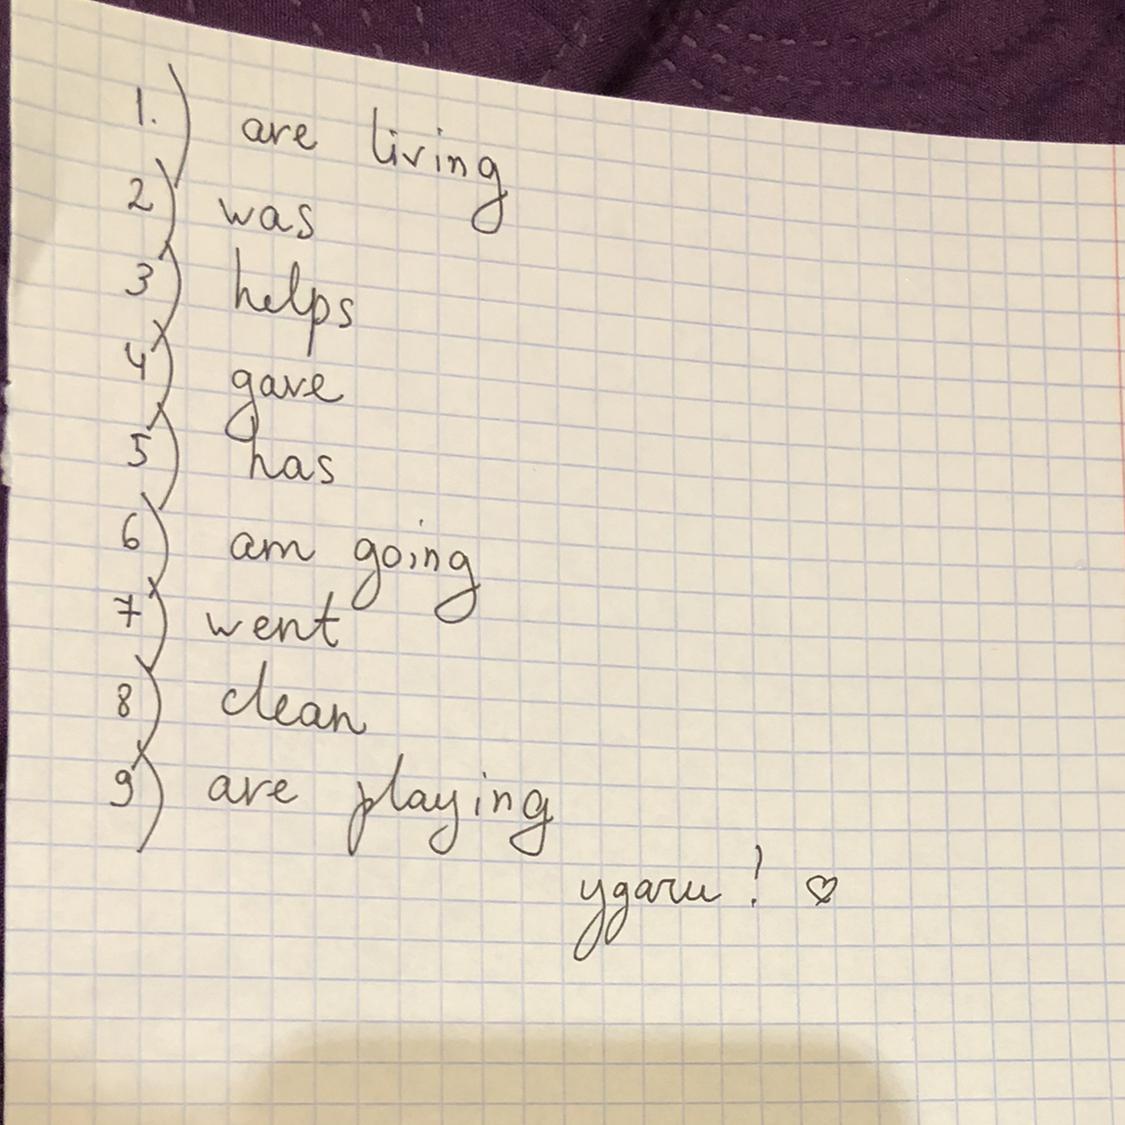 1.) are living
2) was
3) helps
4) gave
5) has
6) am going
7) went
8) clean
9) are playing
удачи! ♡